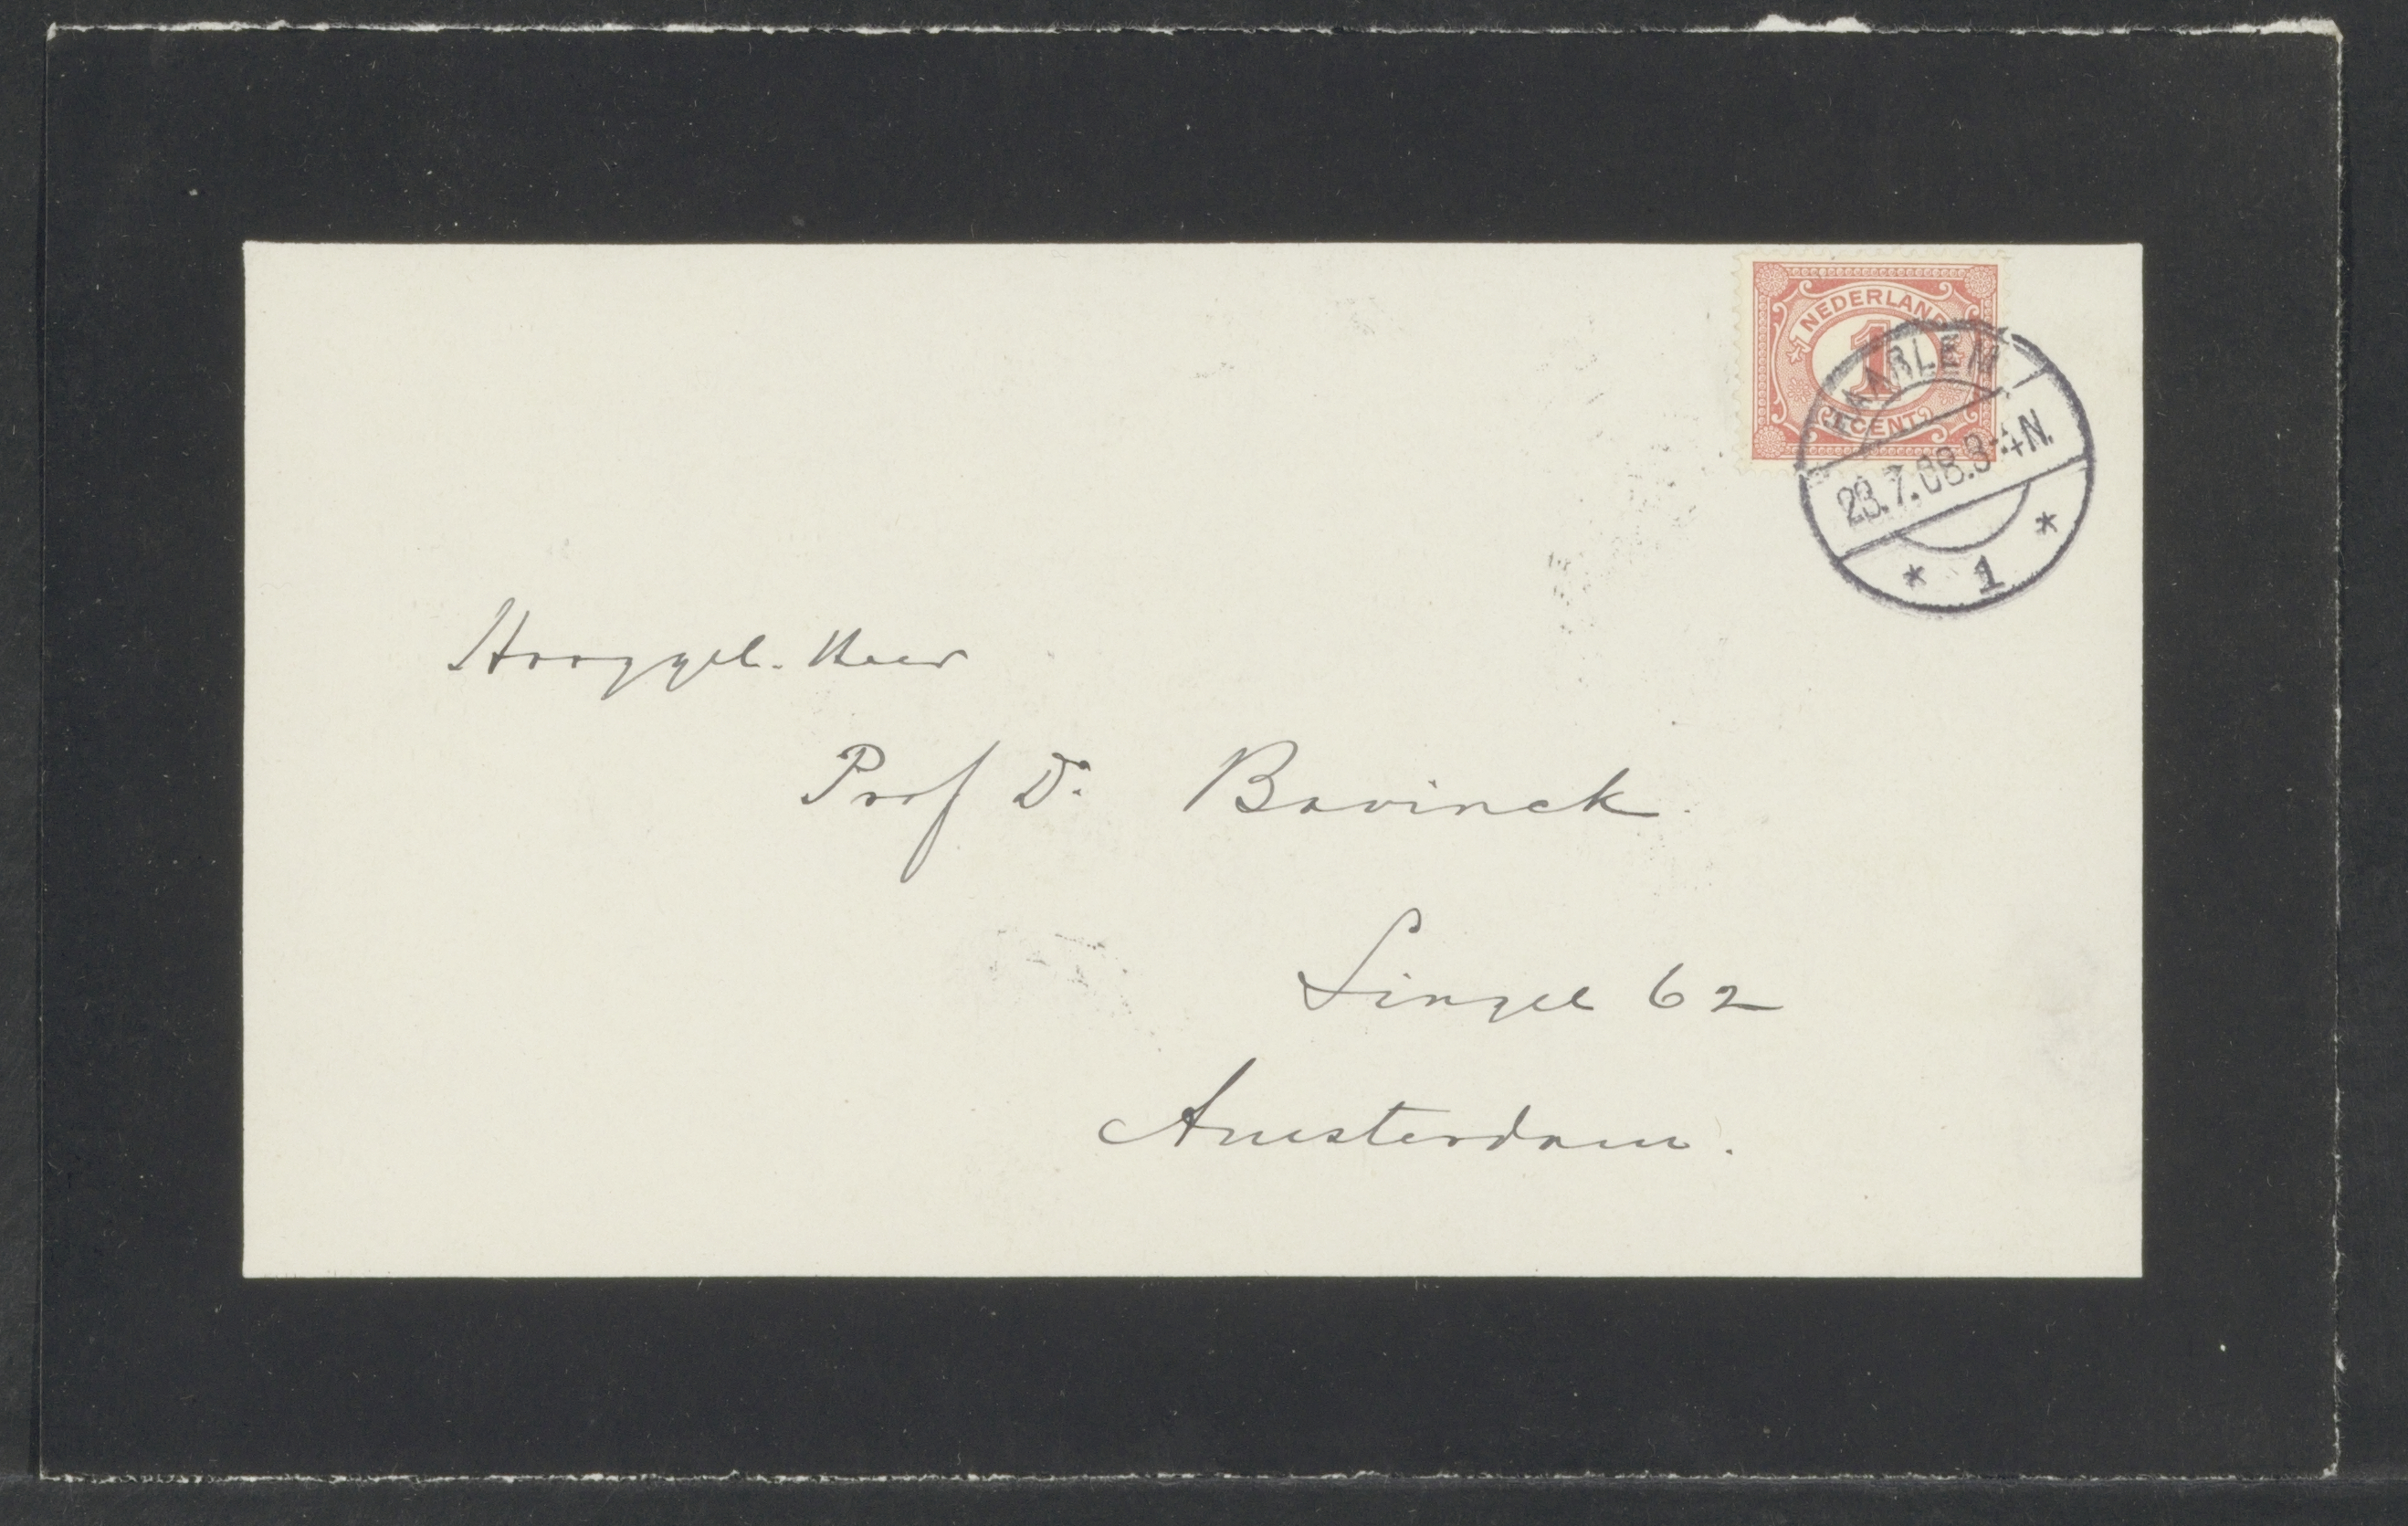 NEDERLAND
1
CENT
HAARLEM
28.7.08.3-4N.
* 1 *
Hooggel. Heer
Prof Dr. Bavinck.
Singel 62
Amsterdam.